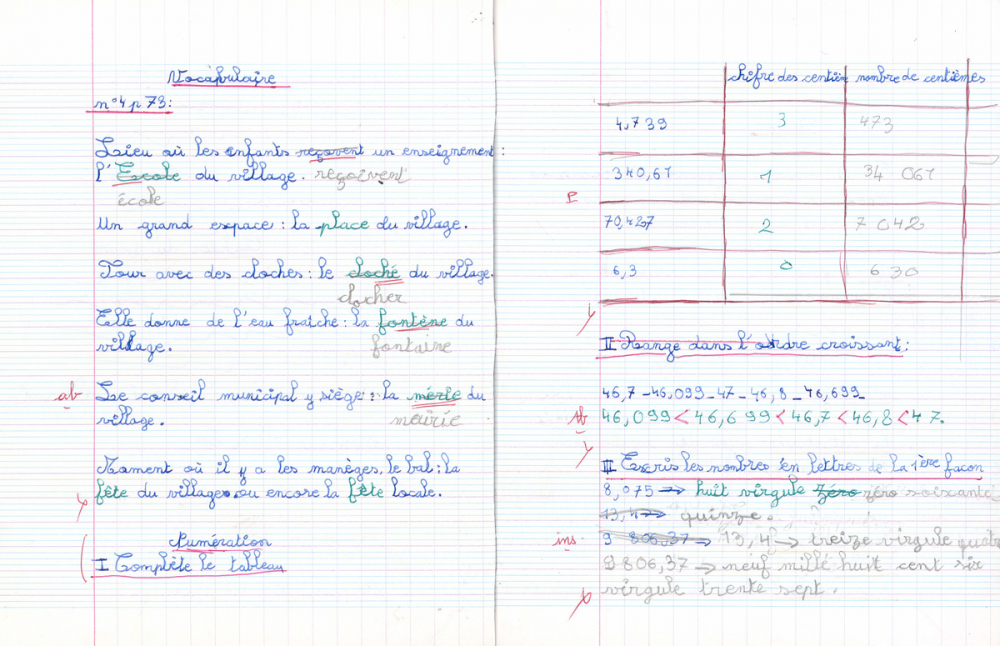 Vocabulaire
n°4 p 73:
Lieu où les enfants reçovent un enseignement:
l'Escole du village. reçoivent
école
Un grand espace: la place du village.
Tour avec des cloches: le cloché du village.
clocher
Elle donne de l'eau fraîche: la fontène du
village. fontaine
ab Le conseil municipal y siège: la mérie du
village. mairie
Moment où il y a les manèges, le bal: la
fête du village ou encore la fête locale.
Numération
I Complète le tableau
chifre des centièm nombre de centièmes
4,739 3 473
340,67 1 34 067
70,427 2 7 042
6,3 0 630
II Range dans l'ordre croissant:
46,7 - 46,099 - 47 - 46,8 - 46,699
Ab 46,099 < 46,699 < 46,7 < 46,8 < 47.
III Ecris les nombres en lettres de la 1ère facon
8,075 → huit virgule zéro zéro soixante
13,4 → quinze.
ins 9 806,37 → 13,4 → treize virgule quatr
9 806,37 → neuf mille huit cent six
virgule trente sept.